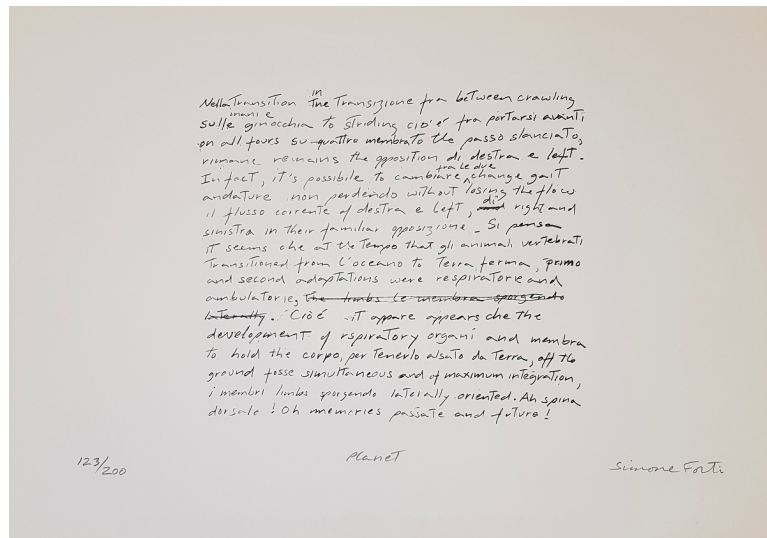 Nella Transition in The Transizione fra between crawling
sulle mani e ginocchia to striding cio'é fra portarsi avanti
on all fours su quattro membra to the passo slanciato,
rimane remains the opposition di destra e left.
In fact, it's possible to cambiare fra le due change gait
andature non perdendo without losing the flow
il flusso corrente of destra e left, di and right and
sinistra in their familiar opposizione. Si pensa
IT seems che at the Tempo that gli animali vertebrati
Transitioned from l'oceano to Terra ferma, primo
and second adaptations were respiratorie and
ambulatorie, the limbs le membra sporgendo
laterally. Cioé it appare appears che the
development of rspiratory organi and membra
to hold the corpo, per Tenerlo alsato da Terra, off the
ground fosse simultaneous and of maximum integration,
i membri limbs sporgendo laterally oriented. Ah spina
dorsale! Oh memories passate and future!
123/200
Planet
Simone Forti